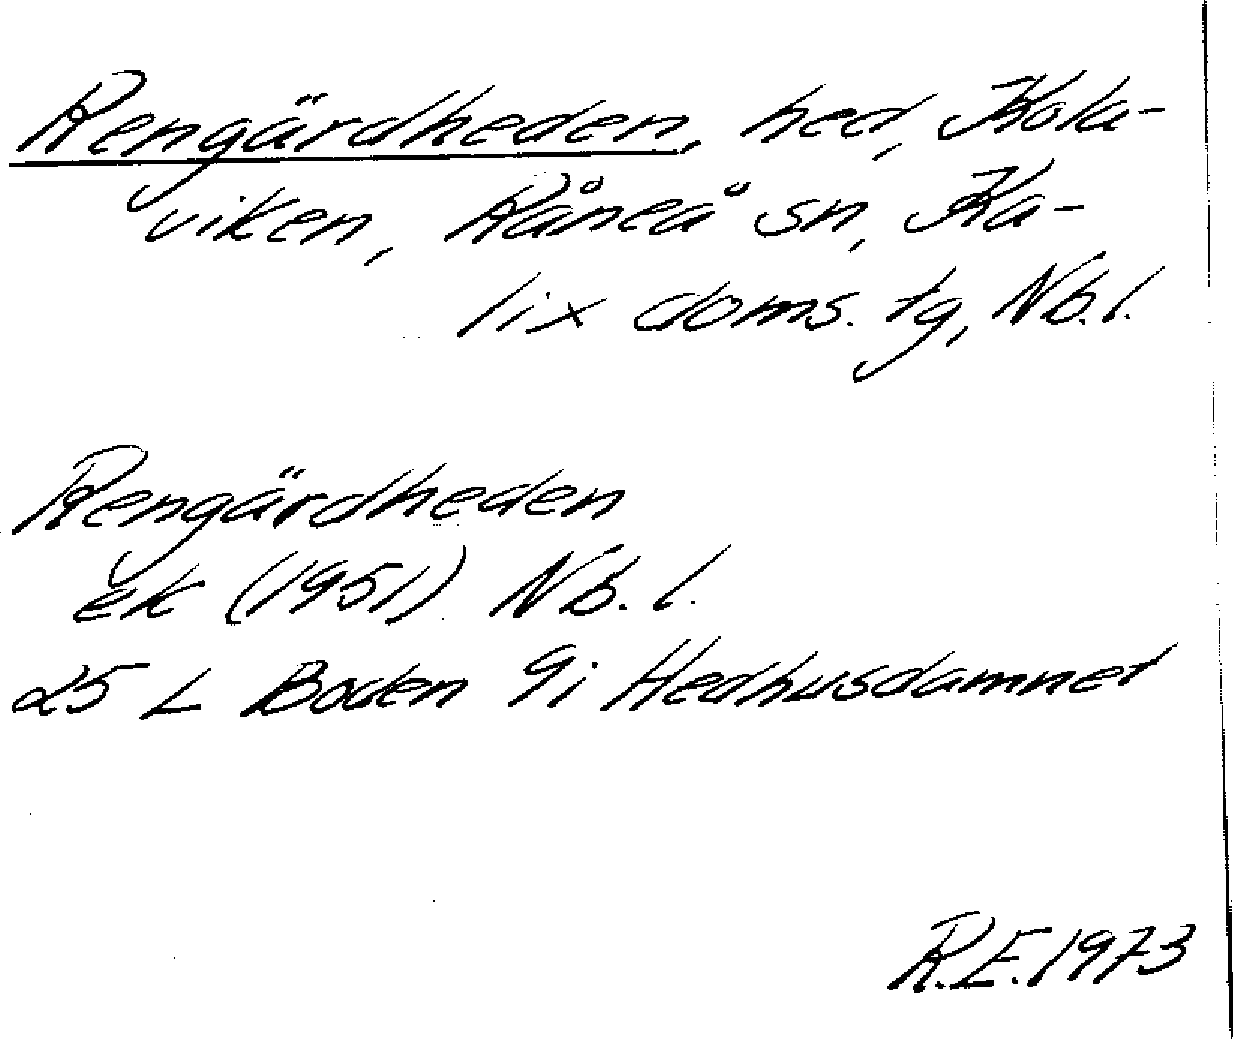 Rengärdheden, hed, Kola-
viken, Råneå sn, Ka-
lix doms. tg, Nb.l.
Rengärdheden
ek (1951) Nb. l.
25 L Boden 9i Hedhusdamnet
R.E. 1973